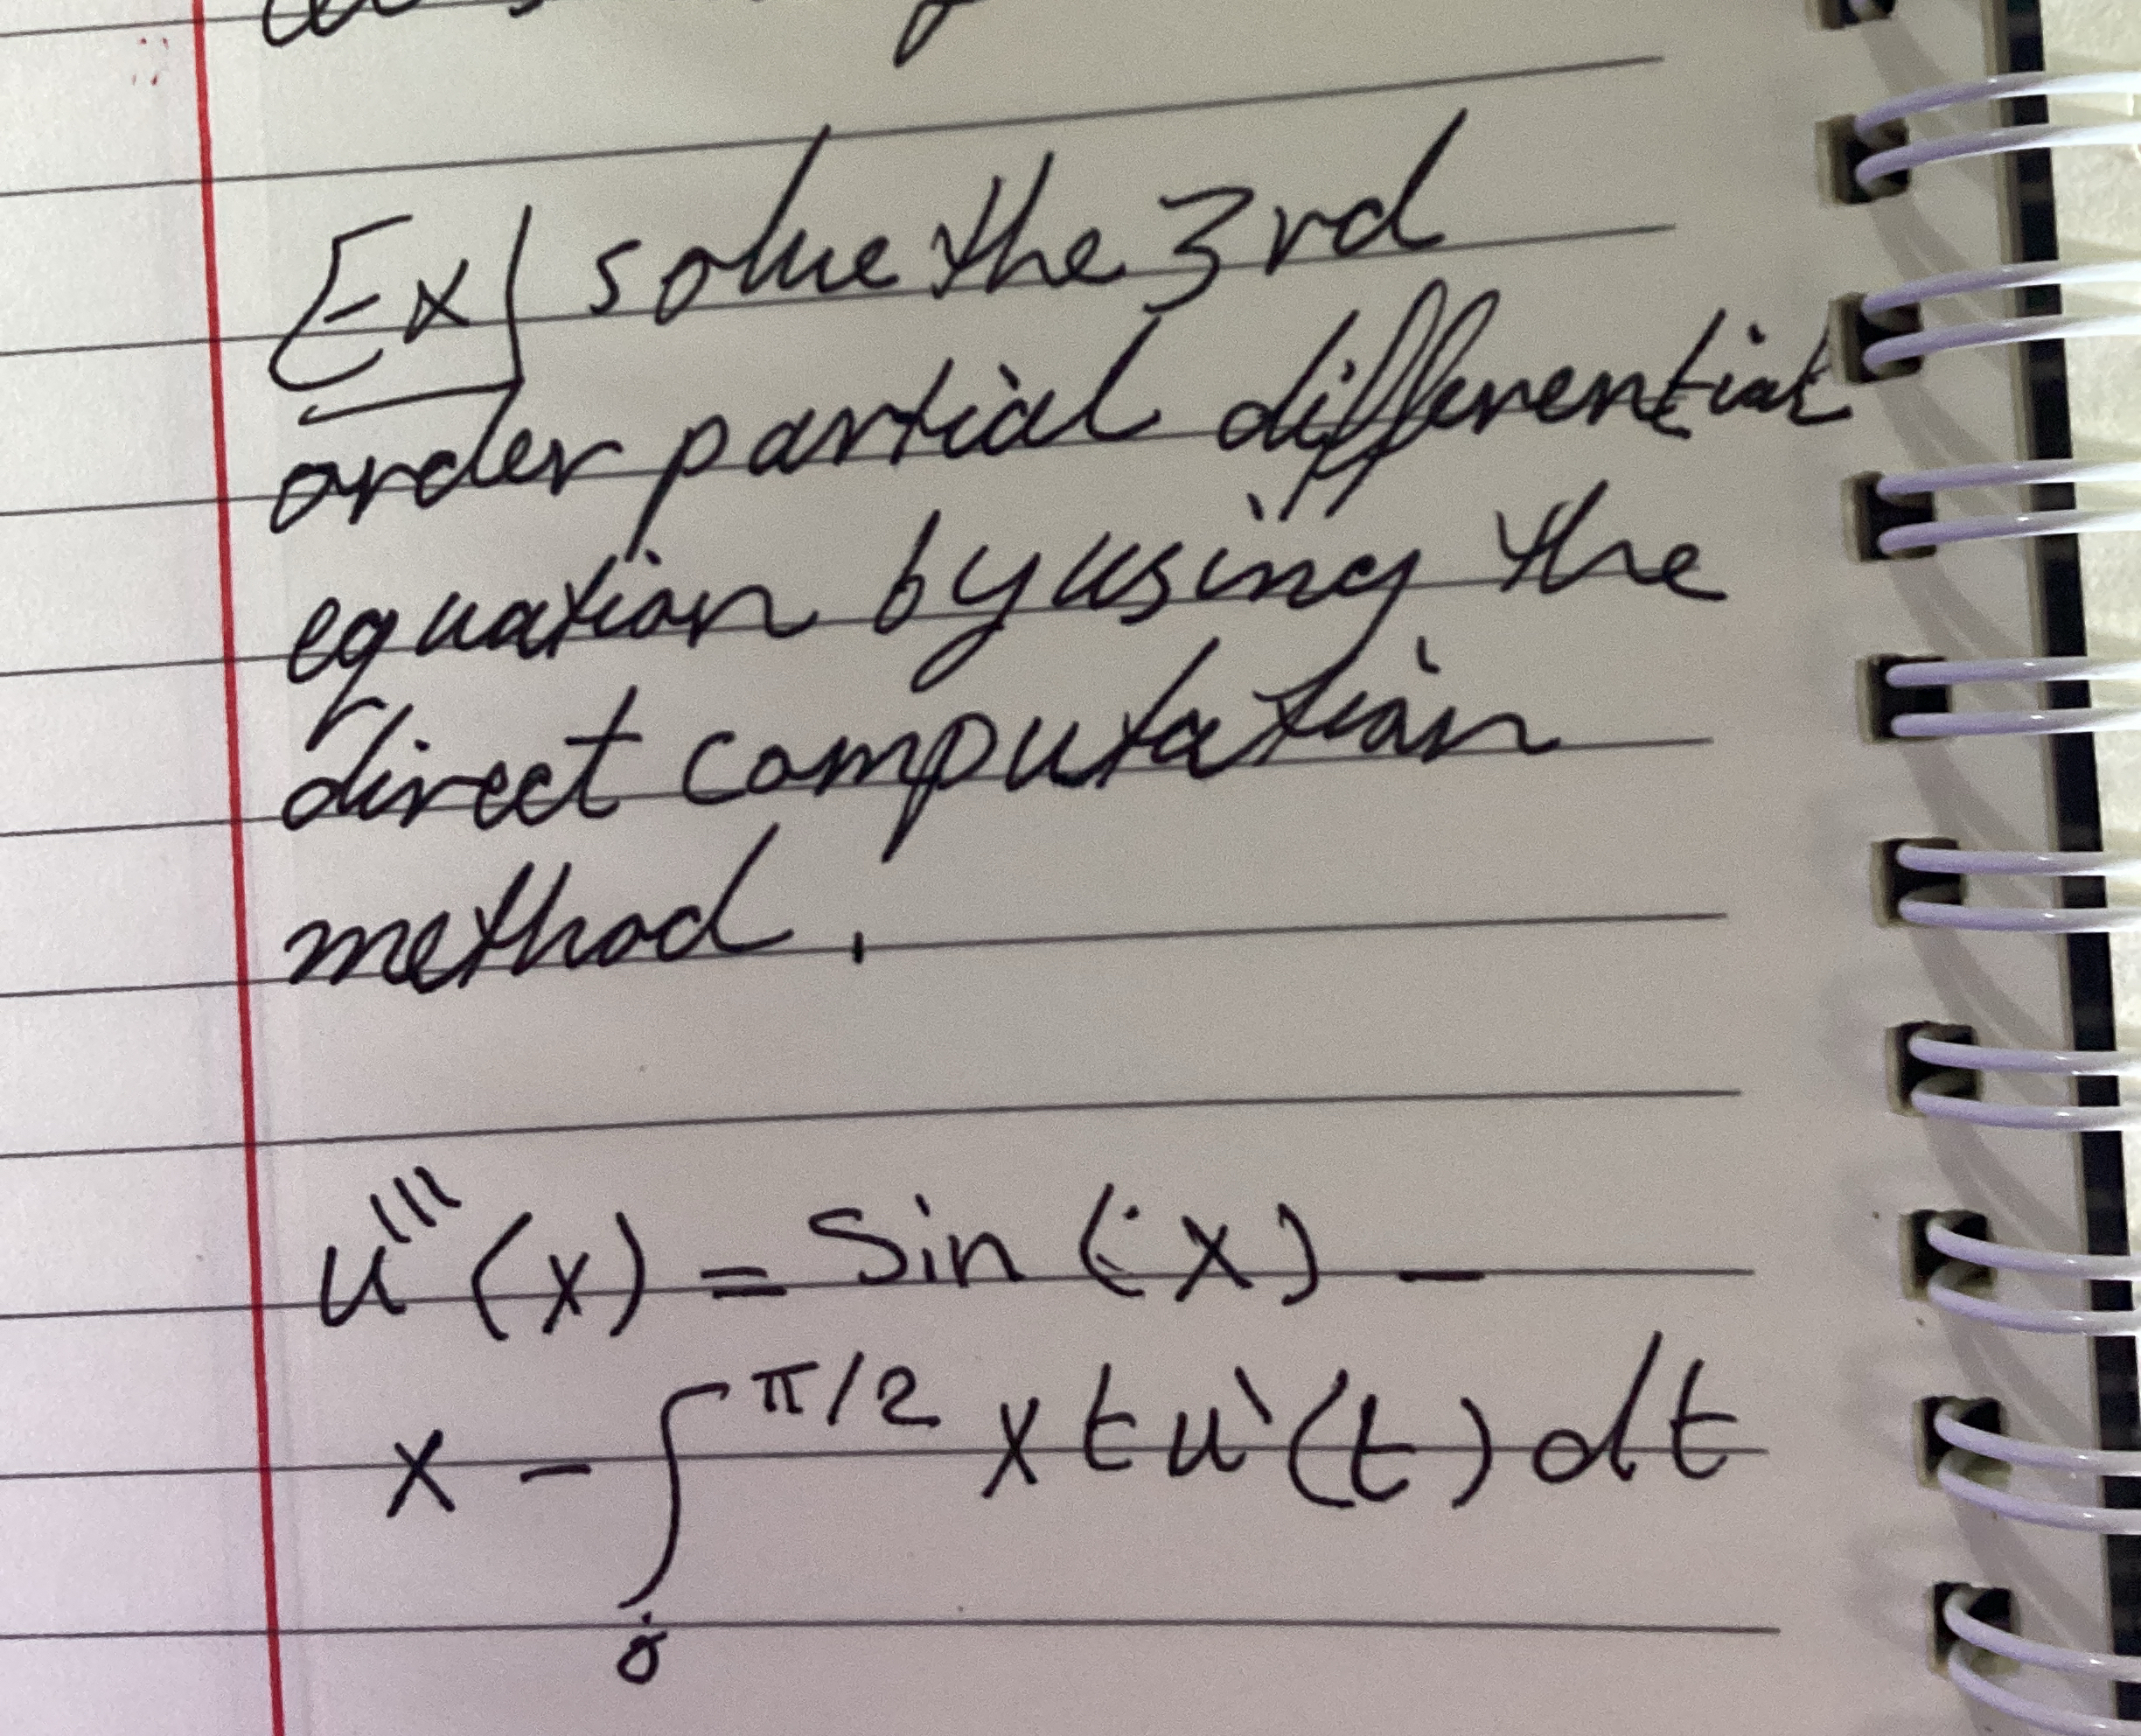 Ex| solve the 3rd
order partial differential
equation by using the
direct computation
method.
u'''(x) = sin(x) -
x - ∫₀^π/2 x t u'(t) dt